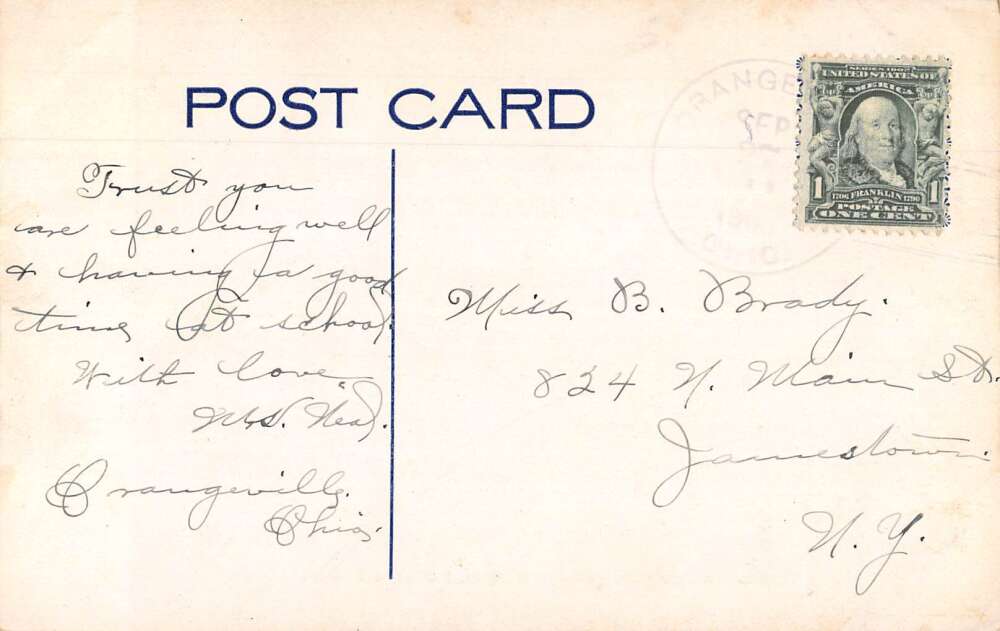 POST CARD
Trust you
are feeling well
& having a good
time at school.
With love
Mrs. Neal.
Orangeville.
Ohio.
ORANGE
SEP
O
SERIES 1902
UNITED STATES OF
AMERICA
1 1706 FRANKLIN 1790 1
POSTAGE
ONE CENT
Miss B. Brady.
824 N. Main St.
Jamestown.
N. Y.